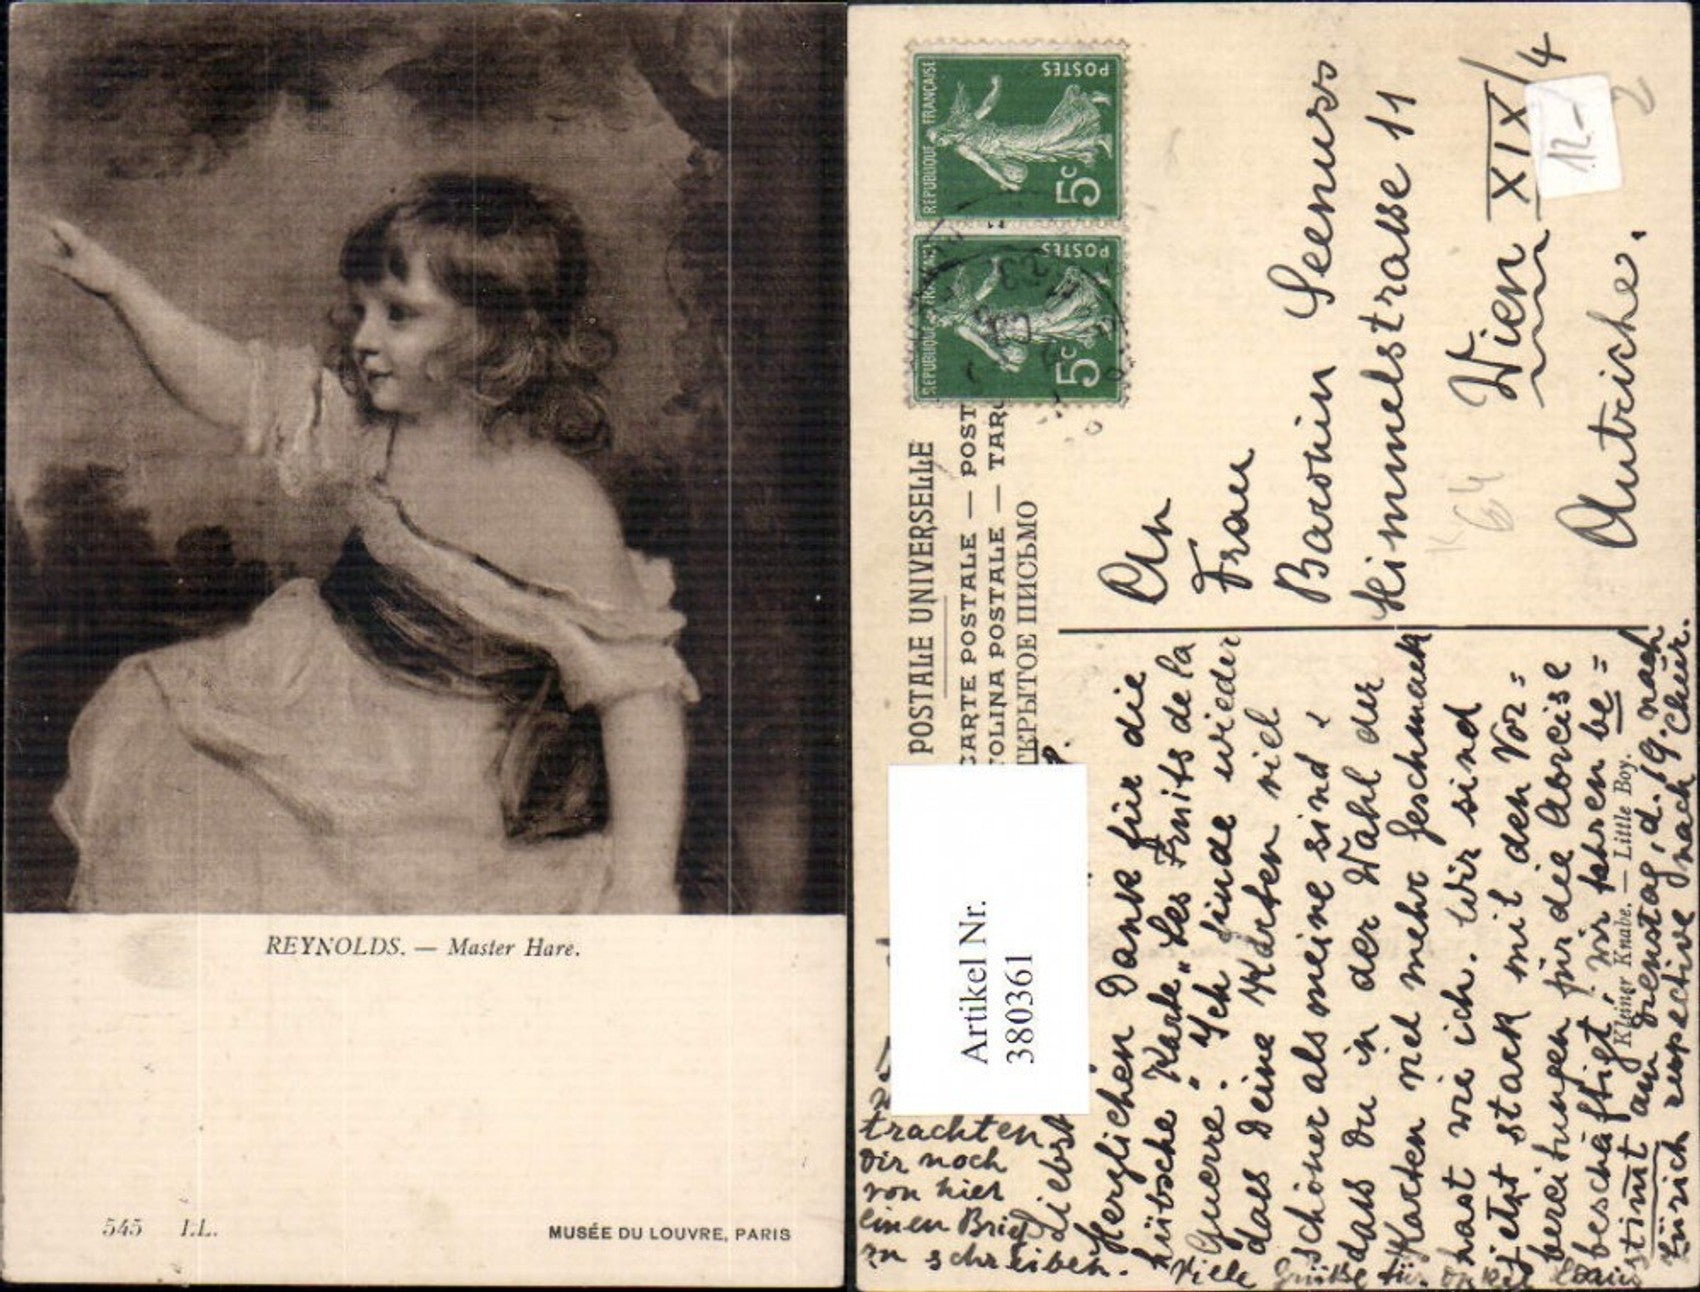 REYNOLDS. — Master Hare.
545 LL.
MUSÉE DU LOUVRE, PARIS
REPUBLIQUE FRANÇAISE
POSTES
5c
REPUBLIQUE FRANÇAISE
POSTES
5c
POSTALE UNIVERSELLE
CARTE POSTALE — POST
TOLINA POSTALE — TAR
ТКРЫТОЕ ПИСЬМО
An
Frau
Baronin Seenuss
Himmelstrasse 11
Wien XIX/4
Autriche.
12-
2
K 64
Artikel Nr.
380361
Liebst
Herzlichen Dank für die
hübsche Karte „Les Fruits de la
Guerre". Ich finde wieder
dass Deine Karten viel
schöner als meine sind &
dass Du in der Wahl der
Karten viel mehr Geschmack
hast wie ich. Wir sind
jetzt stark mit den Vor=
bereitungen für die Abreise
beschäftigt, wir fahren be=
stimmt am Dienstag, d. 19. nach
Zürich respective nach Chur.
Kleiner Knabe. — Little Boy.
Viele Grüsse für Onkel
trachten
Dir noch
von hier
einen Brief
zu schreiben.